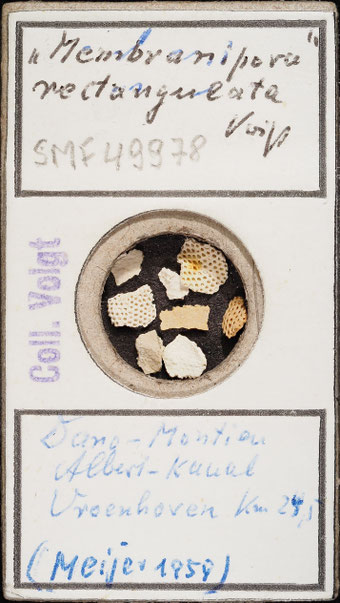 „Membranipora"
rectangulata
Voigt
SMF 49978
Coll. Voigt
Dano-Montien
Albert-Kanal
Vroenhoven Km 24,5
(Meijer 1959)